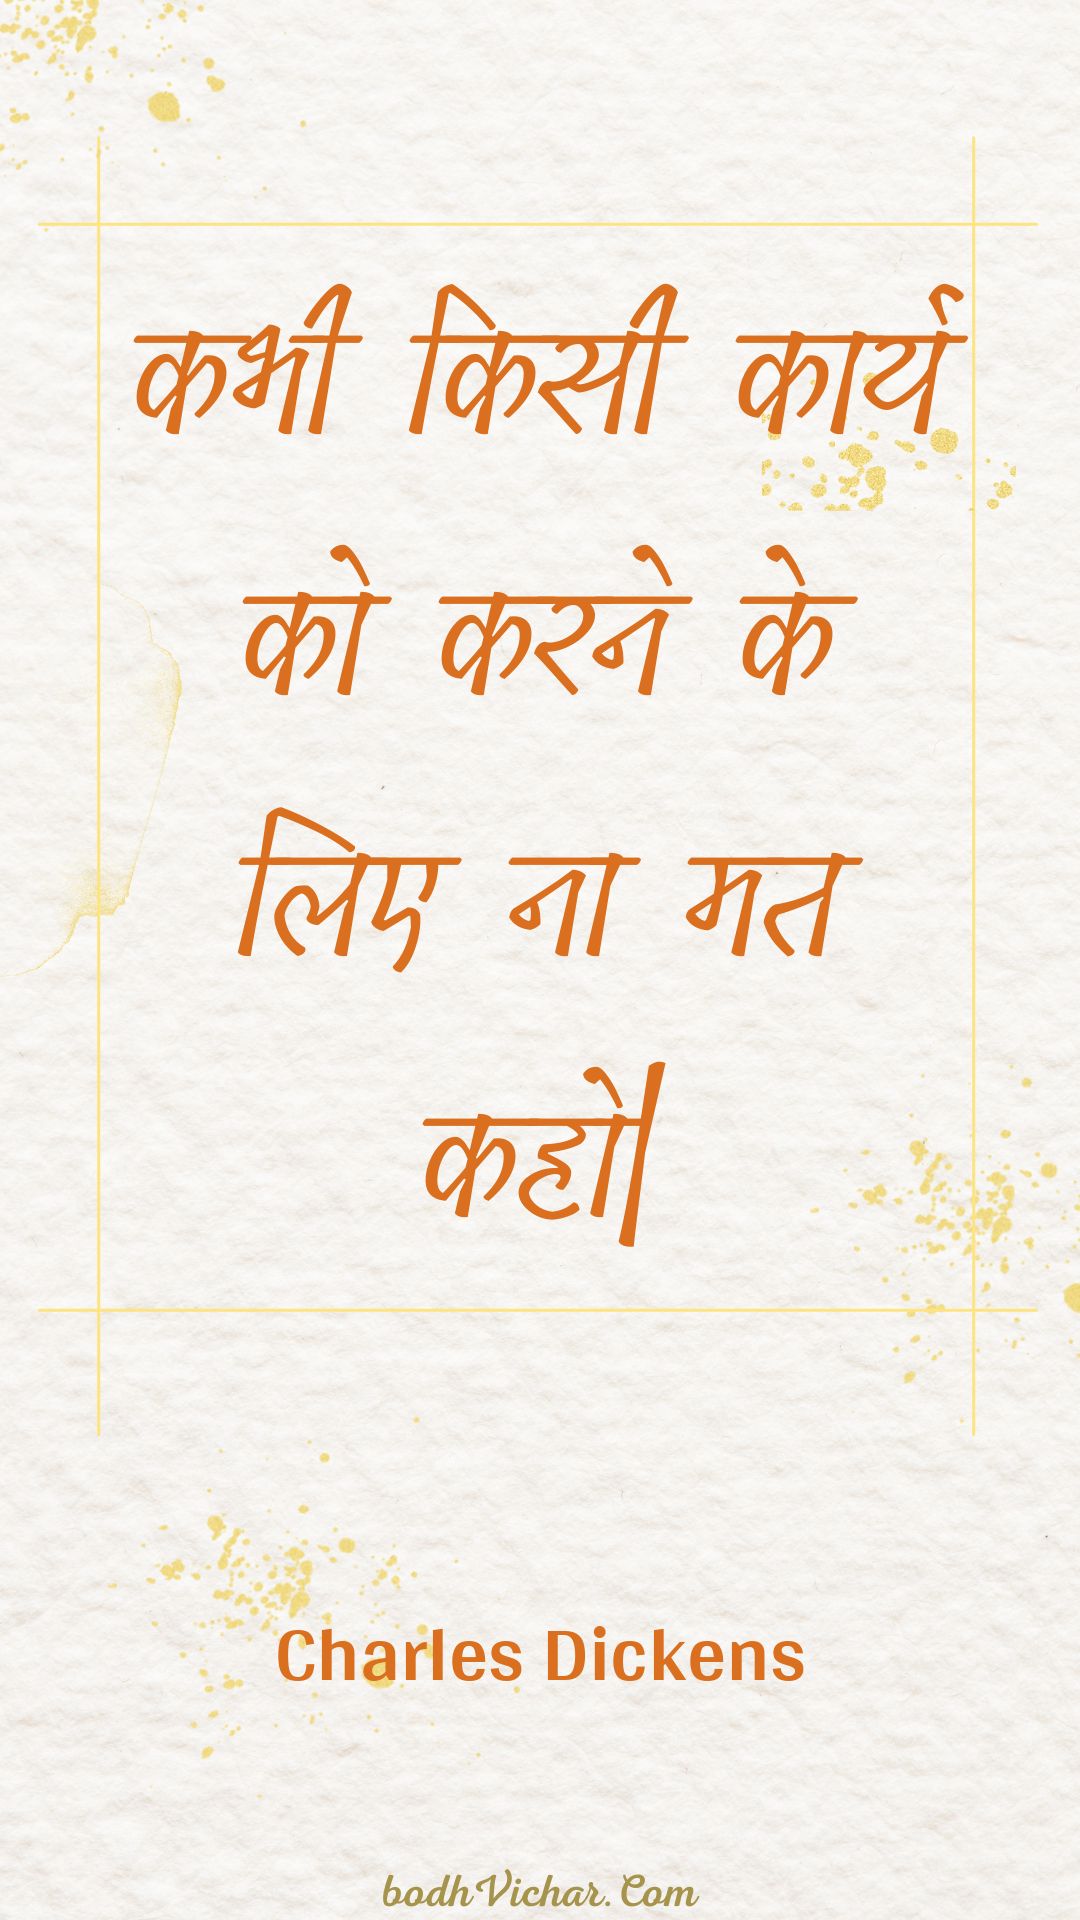 कभी किसी कार्य
को करने के
लिए ना मत
कहो।
Charles Dickens
bodhVichar.Com